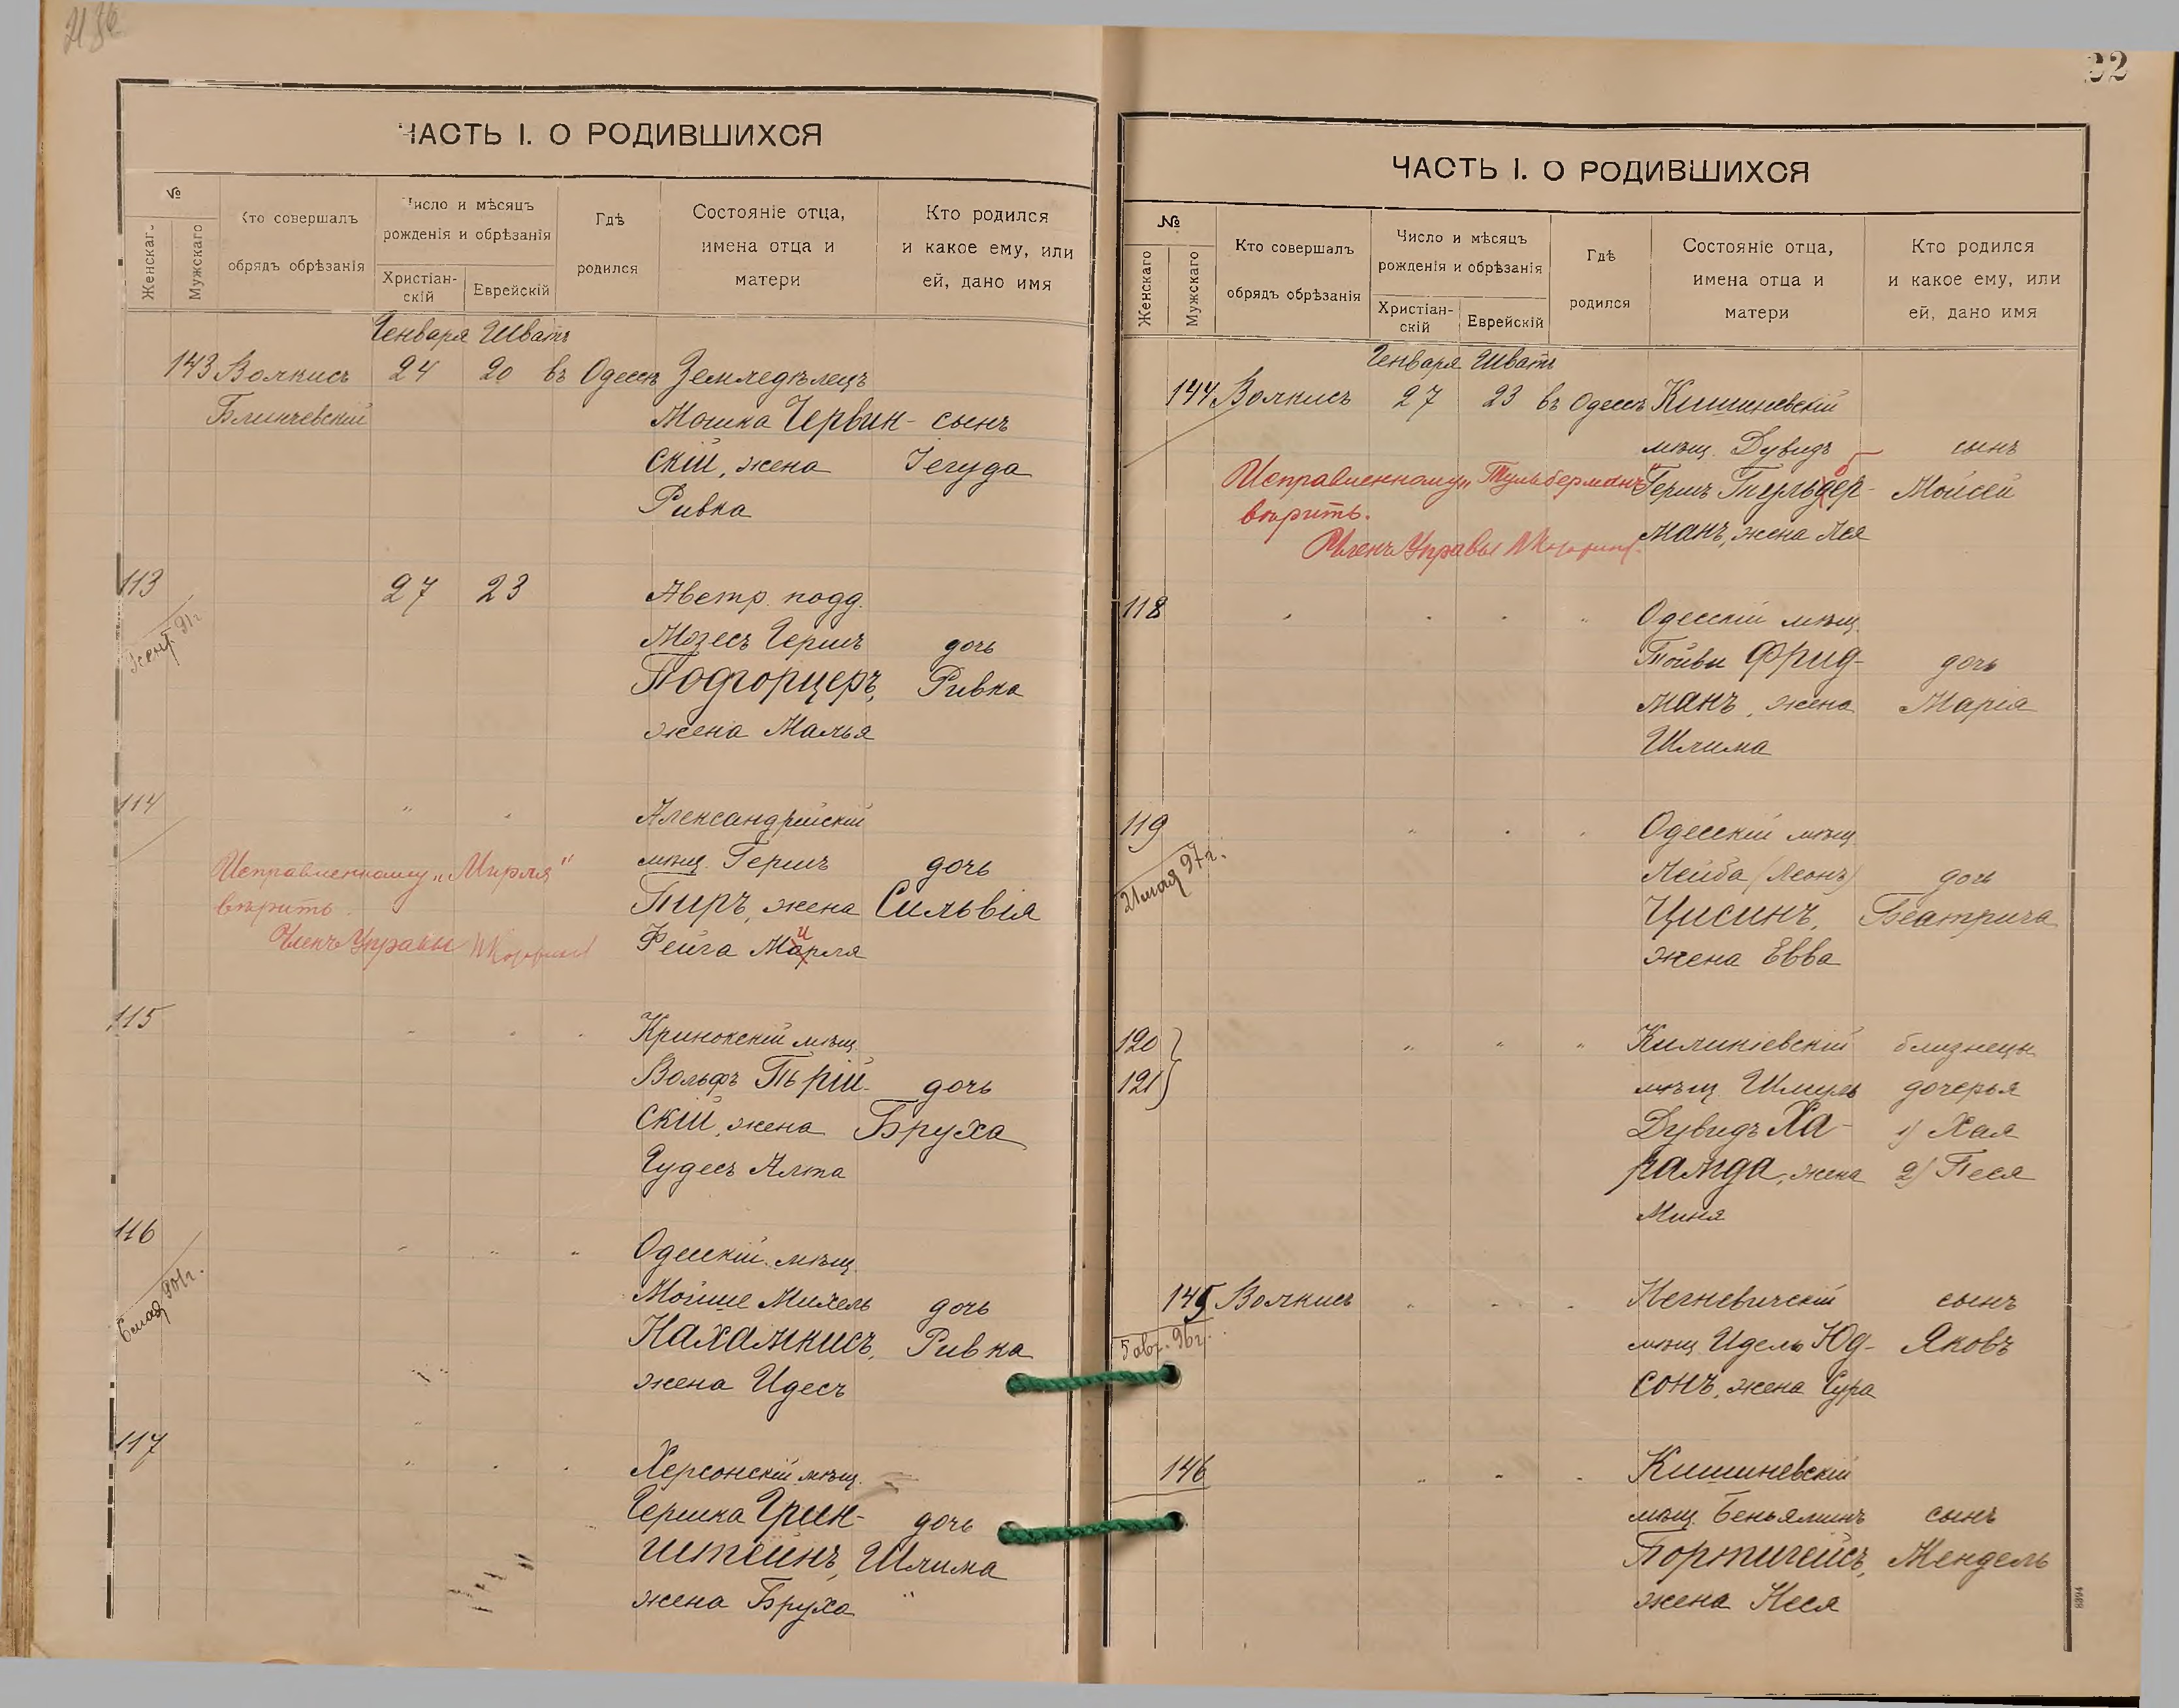 ЧАСТЬ I. О РОДИВШИХСЯ
№
Женскаг.
Мужскаго
Кто совершалъ
обрядъ обрѣзанія
Число и мѣсяцъ
рожденія и обрѣзанія
Христіан-
скій
Еврейскій
Гдѣ
родился
Состояніе отца,
имена отца и
матери
Кто родился
и какое ему, или
ей, дано имя
Генваря Шватъ
143 Волкисъ 24 20 въ Одессѣ Земледѣлецъ
Блинчевскій
Мошка Червин- сынъ
скій, жена Іегуда
Ривка
113 27 23 Австр. подд.
Мозесъ Гершъ дочь
Подгорцеръ, Ривка
жена Малья
114 " " Александрійскій
мѣщ. Гершъ дочь
Исправленному „Мирля"
Пиръ, жена Сильвія
вѣрить.
Членъ Управы
Фейга Марля
и
115 Кринокскій мѣщ.
Вольфъ дочь
скій, жена Бруха
Гудесъ Алта
116 " " " Одесскій мѣщ.
6 мая 901г.
Мойше Михель дочь
Нахамкисъ, Ривка
жена Идесъ
117 " " " Херсонскій мѣщ.
Гершка Грин- дочь
штейнъ, Шлима
жена Бруха
ЧАСТЬ I. О РОДИВШИХСЯ
№
Женскаго
Мужскаго
Кто совершалъ
обрядъ обрѣзанія
Число и мѣсяцъ
рожденія и обрѣзанія
Христіан-
скій
Еврейскій
Гдѣ
родился
Состояніе отца,
имена отца и
матери
Кто родился
и какое ему, или
ей, дано имя
Генваря Шватъ
144 Волкисъ 27 23 въ Одессѣ Кишиневскій
мѣщ. Дувидъ сынъ
Исправленному „Тульберманъ"
Гершъ Мойсей
вѣрить.
Членъ Управы
манъ, жена Лея
118 " " " " Одесскій мѣщ.
Тойвы Фрид- дочь
манъ, жена Марія
Шлима
119 " " " Одесскій мѣщ.
21 мая 97г.
Лейба (Леонъ) дочь
Цисинъ, Беатриса
жена Евва
120 } " " " Киликіевскій близнецы
121 } мѣщ. Шмуль дочерья
Дувидъ Ха- 1) Хая
рамда, жена 2) Песя
Миня
145 Волкисъ " " " Негневичскій сынъ
5 авг. 96г.
мѣщ. Идель Юд- Яковъ
сонъ, жена Сура
146 " " " Кишиневскій
мѣщ. Беньяминъ сынъ
Портигейсъ, Мендель
жена Неся
8394